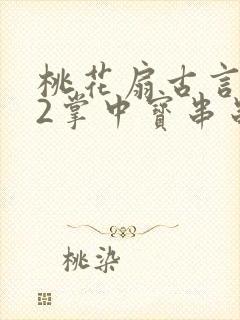 桃花扇古言
2掌中寶串
桃染